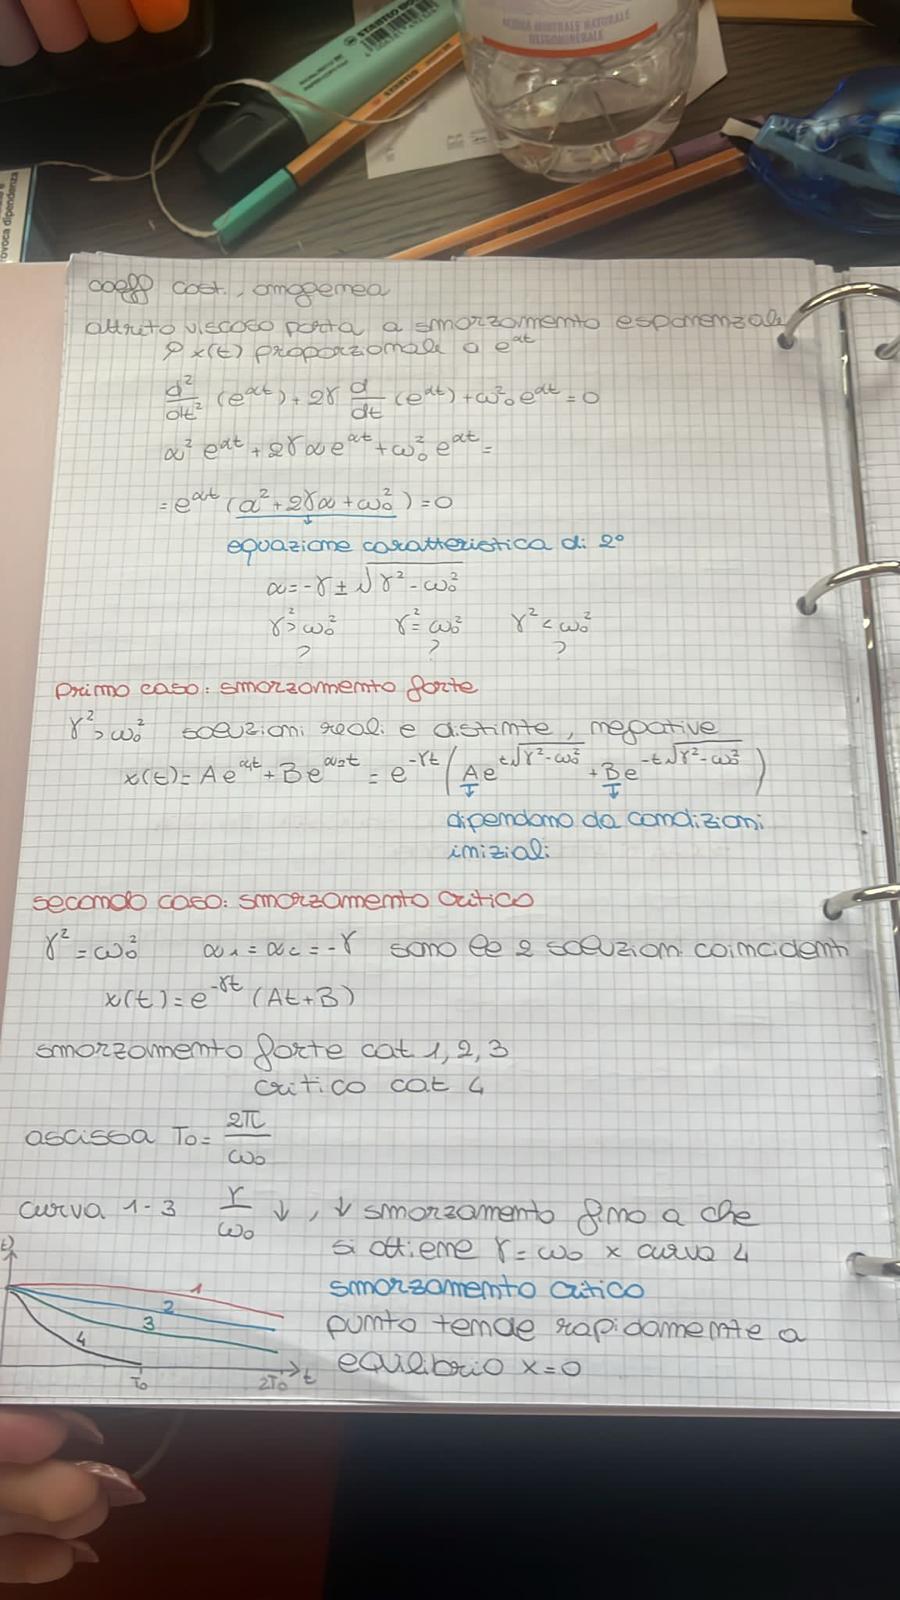 ACQUA MINERALE NATURALE
OLIGOMINERALE
STABILO BOSS
STABILO
ovoca dipendenza
coeff cost., omogenea
attrito viscoso porta a smorzamento esponenziale
x(t) proporzionale a e^αt
d²/dt² (e^αt) + 2γ d/dt (e^αt) + ω₀² e^αt = 0
α² e^αt + 2γα e^αt + ω₀² e^αt =
= e^αt (α² + 2γα + ω₀²) = 0
equazione caratteristica di 2°
α = -γ ± √(γ² - ω₀²)
γ² > ω₀² γ² = ω₀² γ² < ω₀²
? ? ?
primo caso: smorzamento forte
γ² > ω₀² soluzioni reali e distinte, negative
x(t) = Ae^α₁t + Be^α₂t = e^-γt (Ae^t√(γ² - ω₀²) + Be^-t√(γ² - ω₀²))
dipendono da condizioni
iniziali
secondo caso: smorzamento critico
γ² = ω₀² α₁ = α₂ = -γ sono le 2 soluzioni coincidenti
x(t) = e^-γt (At + B)
smorzamento forte cat 1, 2, 3
critico cat 4
ascissa T₀ = 2π/ω₀
curva 1-3 γ/ω₀ ↓, ↓ smorzamento fino a che
si ottiene γ = ω₀ x curva 4
smorzamento critico
punto tende rapidamente a
equilibrio x = 0
1
2
3
4
T₀ 2T₀ t